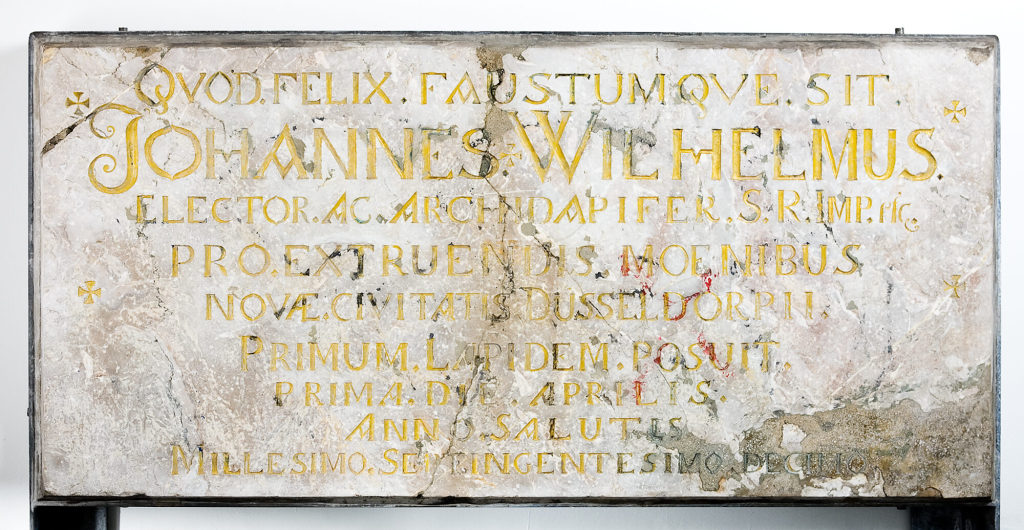 QVOD.FELIX.FAUSTUMQVE.SIT.
JOHANNES WILHELMUS.
ELECTOR.AC.ARCHIDAPIFER.S.R.IMP.HIC
PRO.EXTRUENDIS.MOENIBUS
NOVÆ.CIVITATIS DUSSELDORPII.
PRIMUM.LAPIDEM.POSUIT.
PRIMA.DIE.APRILIS.
ANNO.SALUTIS
MILLESIMO.SEPTINGENTESIMO.DECIMO